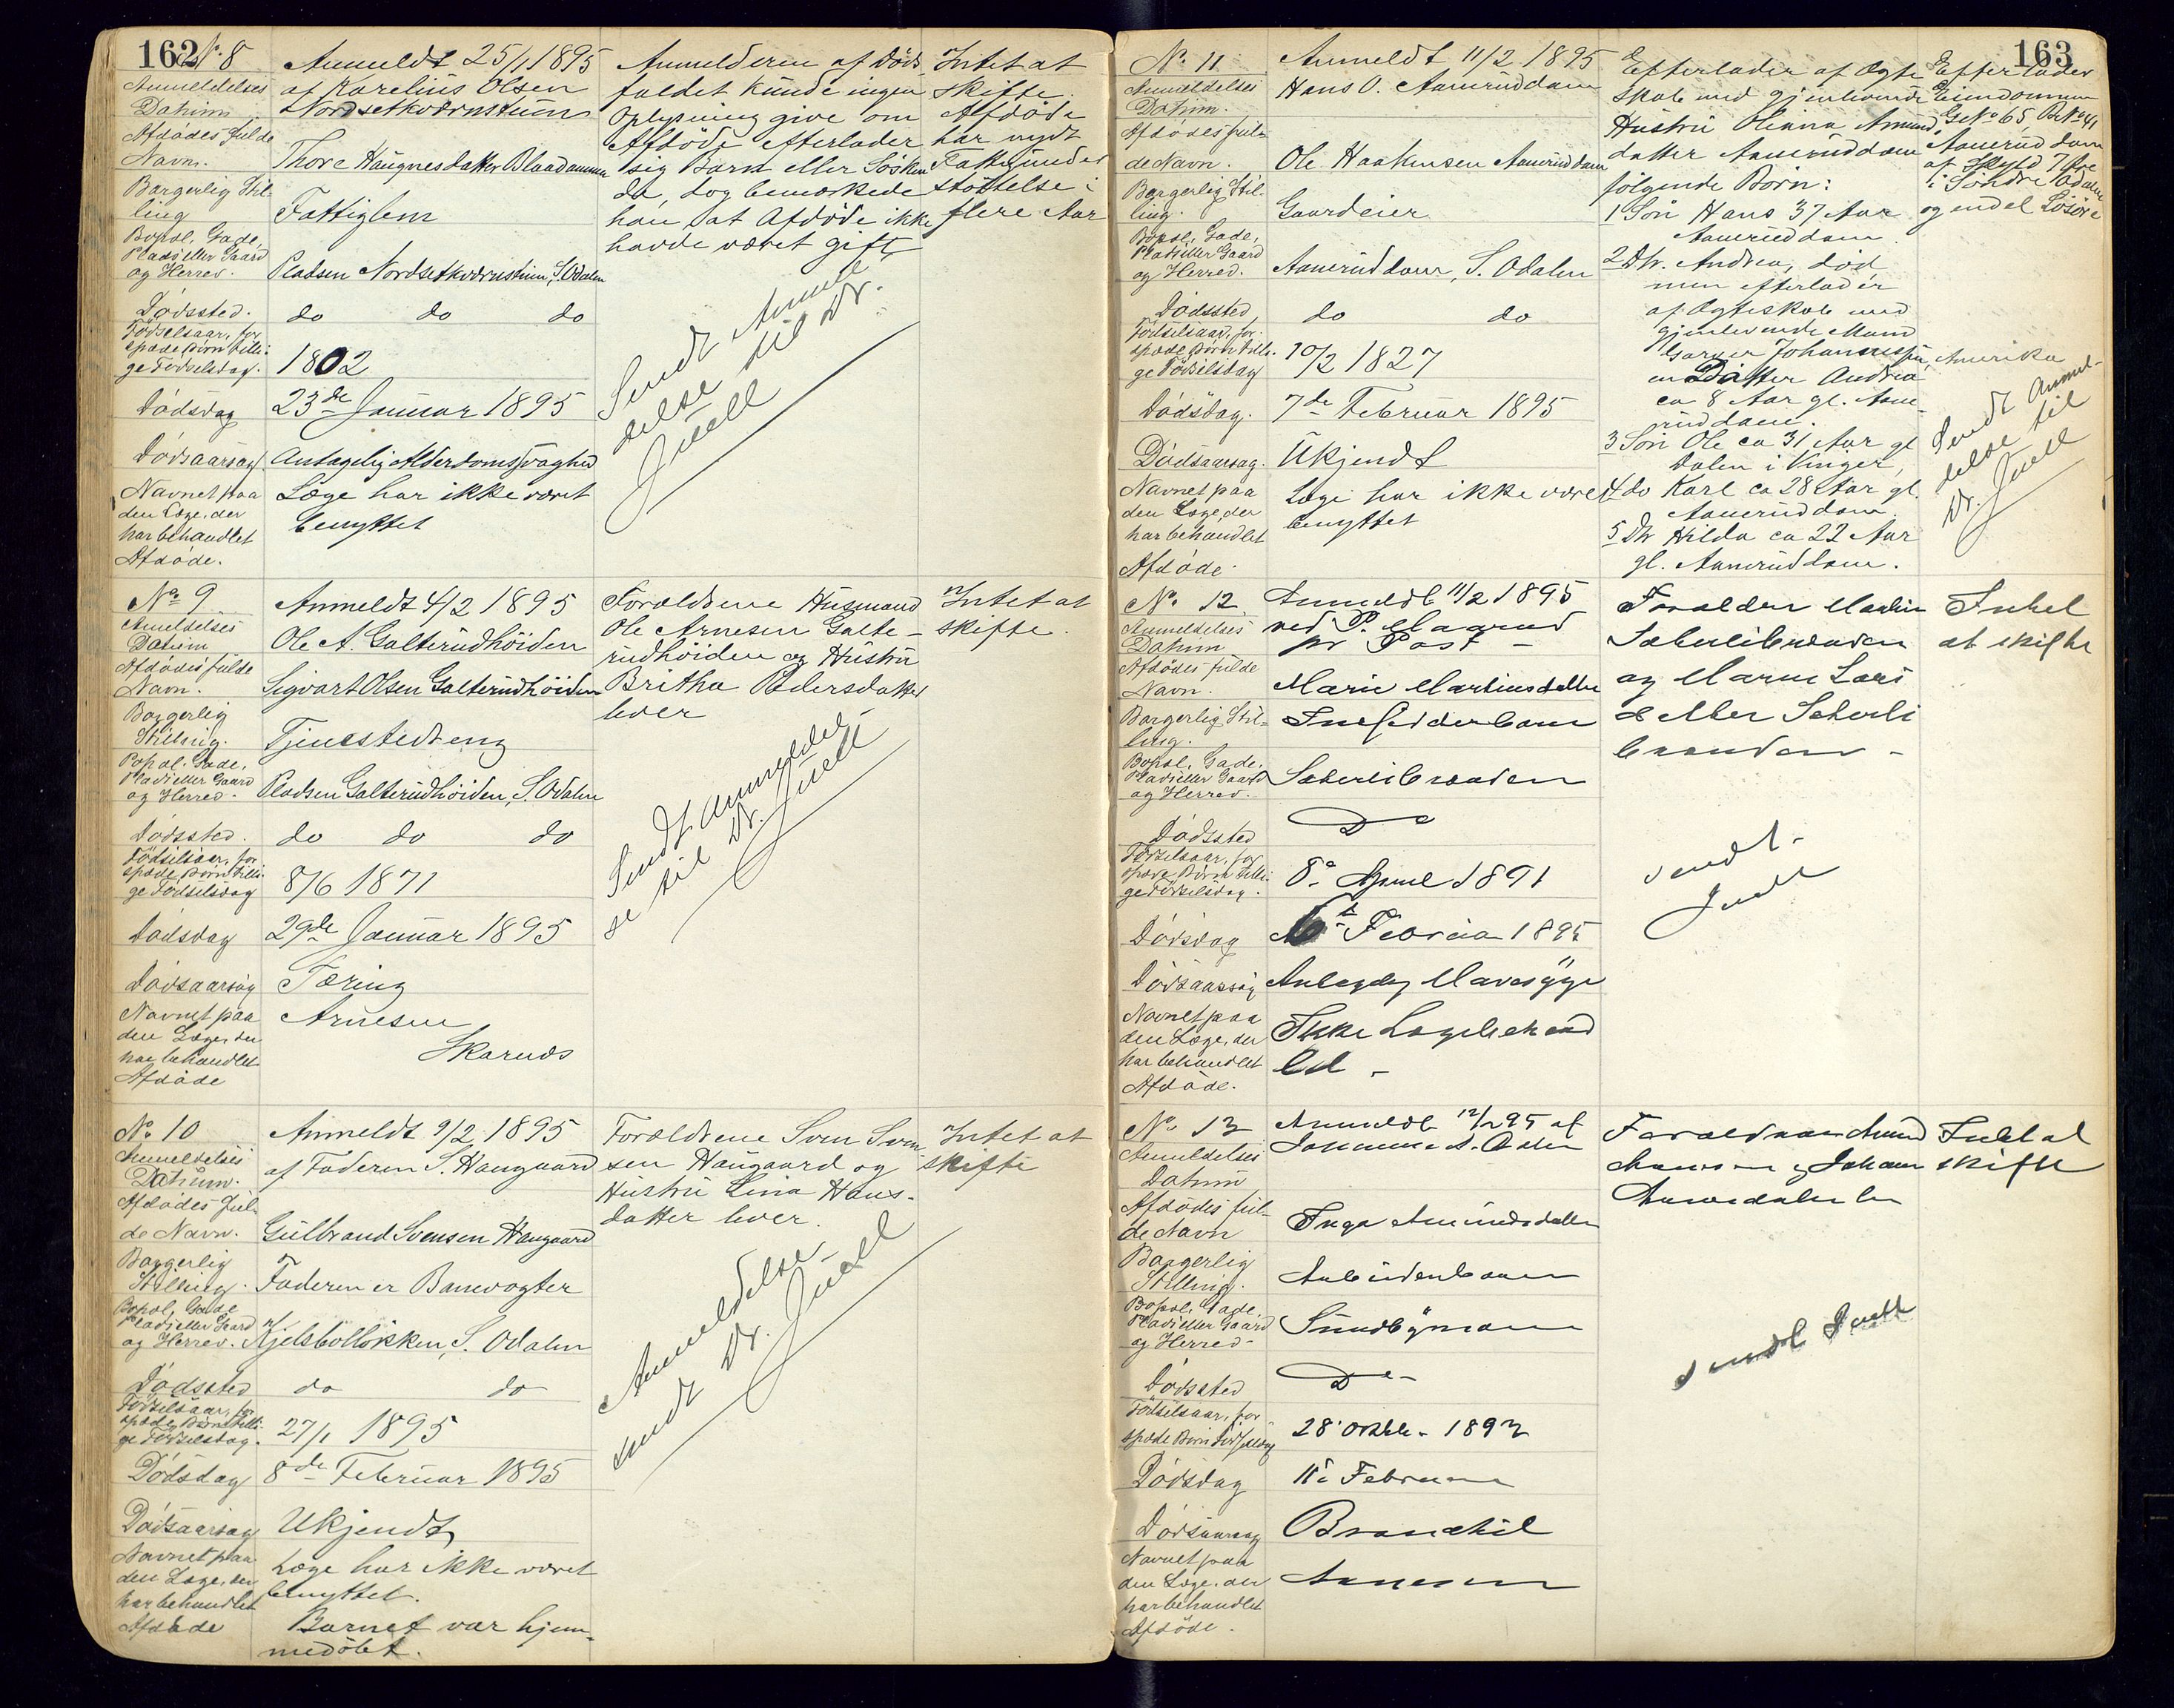 162
No. 8
Anmeldelses
Datum
Afdödes fulde
Navn.
Borgerlig Stil-
ling
Bopæl, Gade,
Plads eller Gaard
og Herred.
Dödssted.
Födselsaar, for
spæde Börn tilli-
ge Födselsdag.
Dödsdag
Dödsaarsag
Navnet paa
den Læge, der
har behandlet
Afdöde.
Anmeldt 25/1 1895
af Karelius Olsen
Nordsetkværnstuen
Thore Haagnesdatter
Fattiglem
Pladsen Nordsetkværnstuen, S. Odalen
do do do
1802
23de Januar 1895
Antagelig Alderdomssvaghed
Læge har ikke været
benyttet
Anmelderen af Döds-
faldet kunde ingen
Oplysning give om
Afdöde efterlader
sig Barn eller Sösken-
de, dog bemærkede
han at Afdöde ikke
havde været gift
Sendt Anmel-
delse til Dr.
Juell
Intet at
skifte.
Afdöde
har nydt
Fattigunder-
stöttelse i
flere Aar
No. 9
Anmeldelses
Datum
Afdödes fulde
Navn.
Borgerlig
Stilling.
Bopæl. Gade,
Plads eller Gaard
og Herred.
Dödssted.
Födselsaar, for
spæde Börn tilli-
ge Födselsdag
Dödsdag
Dödsaarsag
Navnet paa
den Læge, der
har behandlet
Afdöde
Anmeldt 4/2 1895
Ole A. Galterudhöiden
Sigvart Olsen Galterudhöiden
Tjenestedreng
Pladsen Galterudhöiden, S. Odalen
do do do
8/6 1871
29de Januar 1895
Tæring
Arnesen
Skarnes
Forældrene Husmand
Ole Arnesen Galte-
rudhöiden og Hustru
Britha Pedersdatter
lever
Sendt Anmeldel-
se til Dr. Juell
Intet at
skifte.
No. 10
Anmeldelses
Datum.
Afdödes ful-
de Navn.
Borgerlig
Stilling.
Bopæl, Gade
Plads eller Gaard
og Herred.
Dödssted
Födselsaar, for
spæde Börn tilli-
ge Födselsdag.
Dödsdag
Dödsaarsag
Navnet paa
den Læge, der
har behandlet
Afdöde
Anmeldt 9/2 1895
af Faderen S. Haugaard
Gulbrand Svensen Haugaard
Faderen er Banevogter
S. Odalen
do do
27/1 1895
8de Februar 1895
Ukjendt
Læge har ikke været
benyttet.
Barnet var hjem-
medöbt.
Forældrene Sven Sven-
sen Haugaard og
Hustru Lina Hans-
datter lever.
Anmeldelse
sendt Dr. Juell
Intet at
skifte
163
No. 11
Anmeldelses
Datum.
Afdödes ful-
de Navn.
Borgerlig Stil-
ling.
Bopæl, Gade,
Plads eller Gaard
og Herred.
Dödssted
Födselsaar, for
spæde Börn tilli-
ge Födselsdag
Dödsdag.
Dödsaarsag.
Navnet paa
den Læge, der
har behandlet
Afdöde.
Anmeldt 11/2 1895
Hans O. Aaneruddam
Ole Haakensen Aaneruddam
Gaardeier
Aaneruddam, S. Odalen
do do
10/2 1827
7de Februar 1895
Ukjendt
Læge har ikke været
benyttet
Efterlader af Ægte-
skab med gjenlevende
Hustru Oleana Amunds-
datter Aaneruddam
følgende Börn:
1 Sön Hans 37 Aar
Aaneruddam.
2 Dtr. Andrea, död
men efterlader
af Ægteskab med
gjenlevende Mand
Johannessen, Amerika
en Datter Andrea
ca 8 Aar gl. Aane-
ruddam.
3 Sön Ole ca 31 Aar gl
Dalen i Vinger,
4 do Karl ca 28 Aar gl.
Aaneruddam.
5 Dtr Hilda ca 22 Aar
gl. Aaneruddam.
Efterlader
Eiendommen
G. No. 65 Br. No. 41
Aanerud dam
af Skyld 7 Öre
i Söndre Odalen
og endel Lösöre
Sendt Anmel-
delse til
Dr. Juell
No. 12
Anmeldelses
Datum
Afdödes fulde
Navn.
Borgerlig Stil-
ling.
Bopæl, Gade,
Plads eller Gaard
og Herred.
Dödssted
Födselsaar, for
spæde Börn tilli-
ge Födselsdag.
Dödsdag
Dödsaarsag
Navnet paa
den Læge, der
har behandlet
Afdöde.
Anmeldt 11/2 1895
ved P. Maarud
pr Post -
Marie Martinsdatter
Inds
Sæterlibraaden
Do
8de April 1891
Februar 1895
Antagelig Mavesyge
Ikke Lægebehand
let -
Forældre Martin
Sæterlibraaden
og Maren Lars
datter Sæterli
braaden -
sendt -
Juell
Intet
at skifte
No. 13
Anmeldelses
Datum
Afdödes ful-
de Navn
Borgerlig
Stilling.
Bopæl, Gade,
Plads eller Gaard
og Herred -
Dödssted
Födselsaar, for
spæde Börn
Dödsdag
Dödsaarsag
Navnet paa
den Læge, der
har behandlet
Afdöde.
Anmeldt 12/2 95 af
Inga Amundsdatter
Arbeiderbarn
Sundbymoen
Do -
28 Oktbr. 1893
11te Februar
Bronchit
Arnesen
Forældrene Amund
Intet at
skifte
sendt Juell